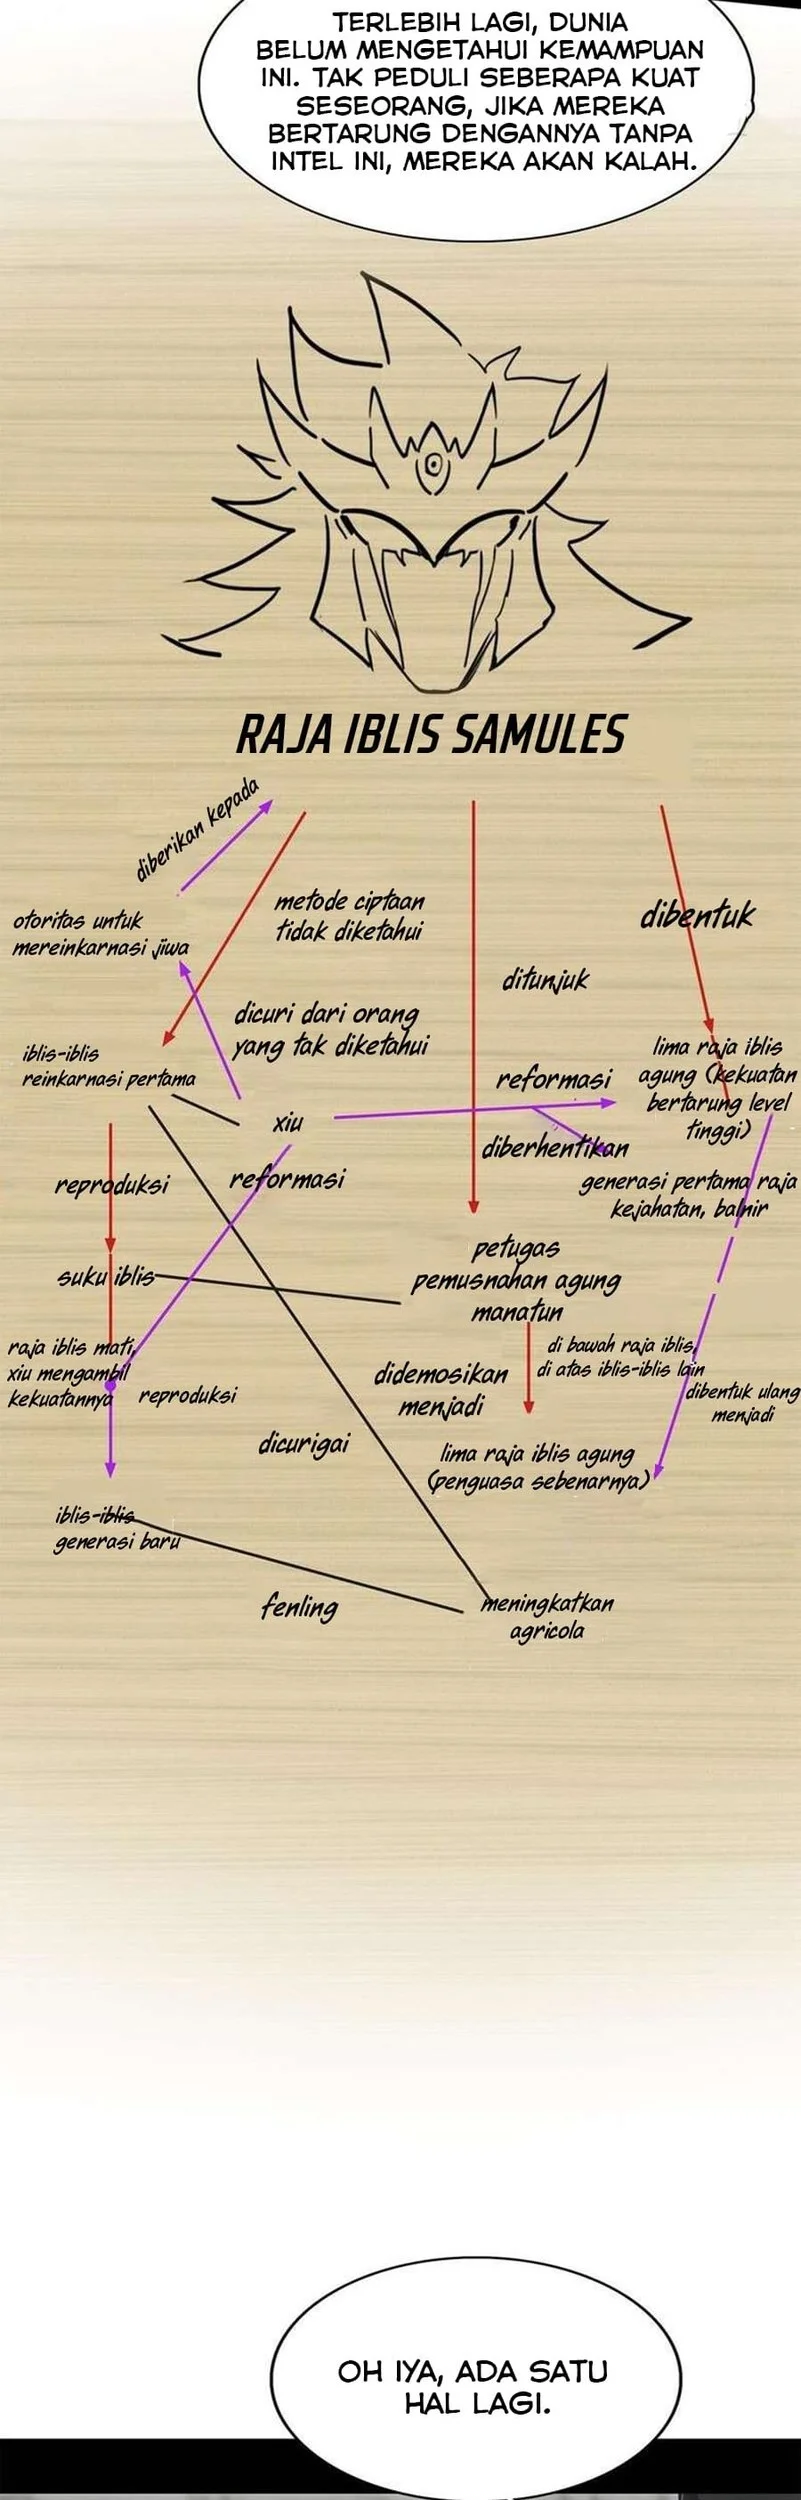 TERLEBIH LAGI, DUNIA
BELUM MENGETAHUI KEMAMPUAN
INI. TAK PEDULI SEBERAPA KUAT
SESEORANG, JIKA MEREKA
BERTARUNG DENGANNYA TANPA
INTEL INI, MEREKA AKAN KALAH.
RAJA IBLIS SAMULES
diberikan kepada
otoritas untuk
mereinkarnasi jiwa
metode ciptaan
tidak diketahui
dibentuk
ditunjuk
dicuri dari orang
yang tak diketahui
iblis-iblis
reinkarnasi pertama
xiu
reformasi
lima raja iblis
agung (kekuatan
bertarung level
tinggi)
diberhentikan
generasi pertama raja
kejahatan, balnir
reproduksi
reformasi
suku iblis
petugas
pemusnahan agung
manatun
raja iblis mati,
xiu mengambil
kekuatannya
reproduksi
didemosikan
menjadi
di bawah raja iblis,
di atas iblis-iblis lain
dibentuk ulang
menjadi
dicurigai
lima raja iblis agung
(penguasa sebenarnya)
iblis-iblis
generasi baru
fenling
meningkatkan
agricola
OH IYA, ADA SATU
HAL LAGI.